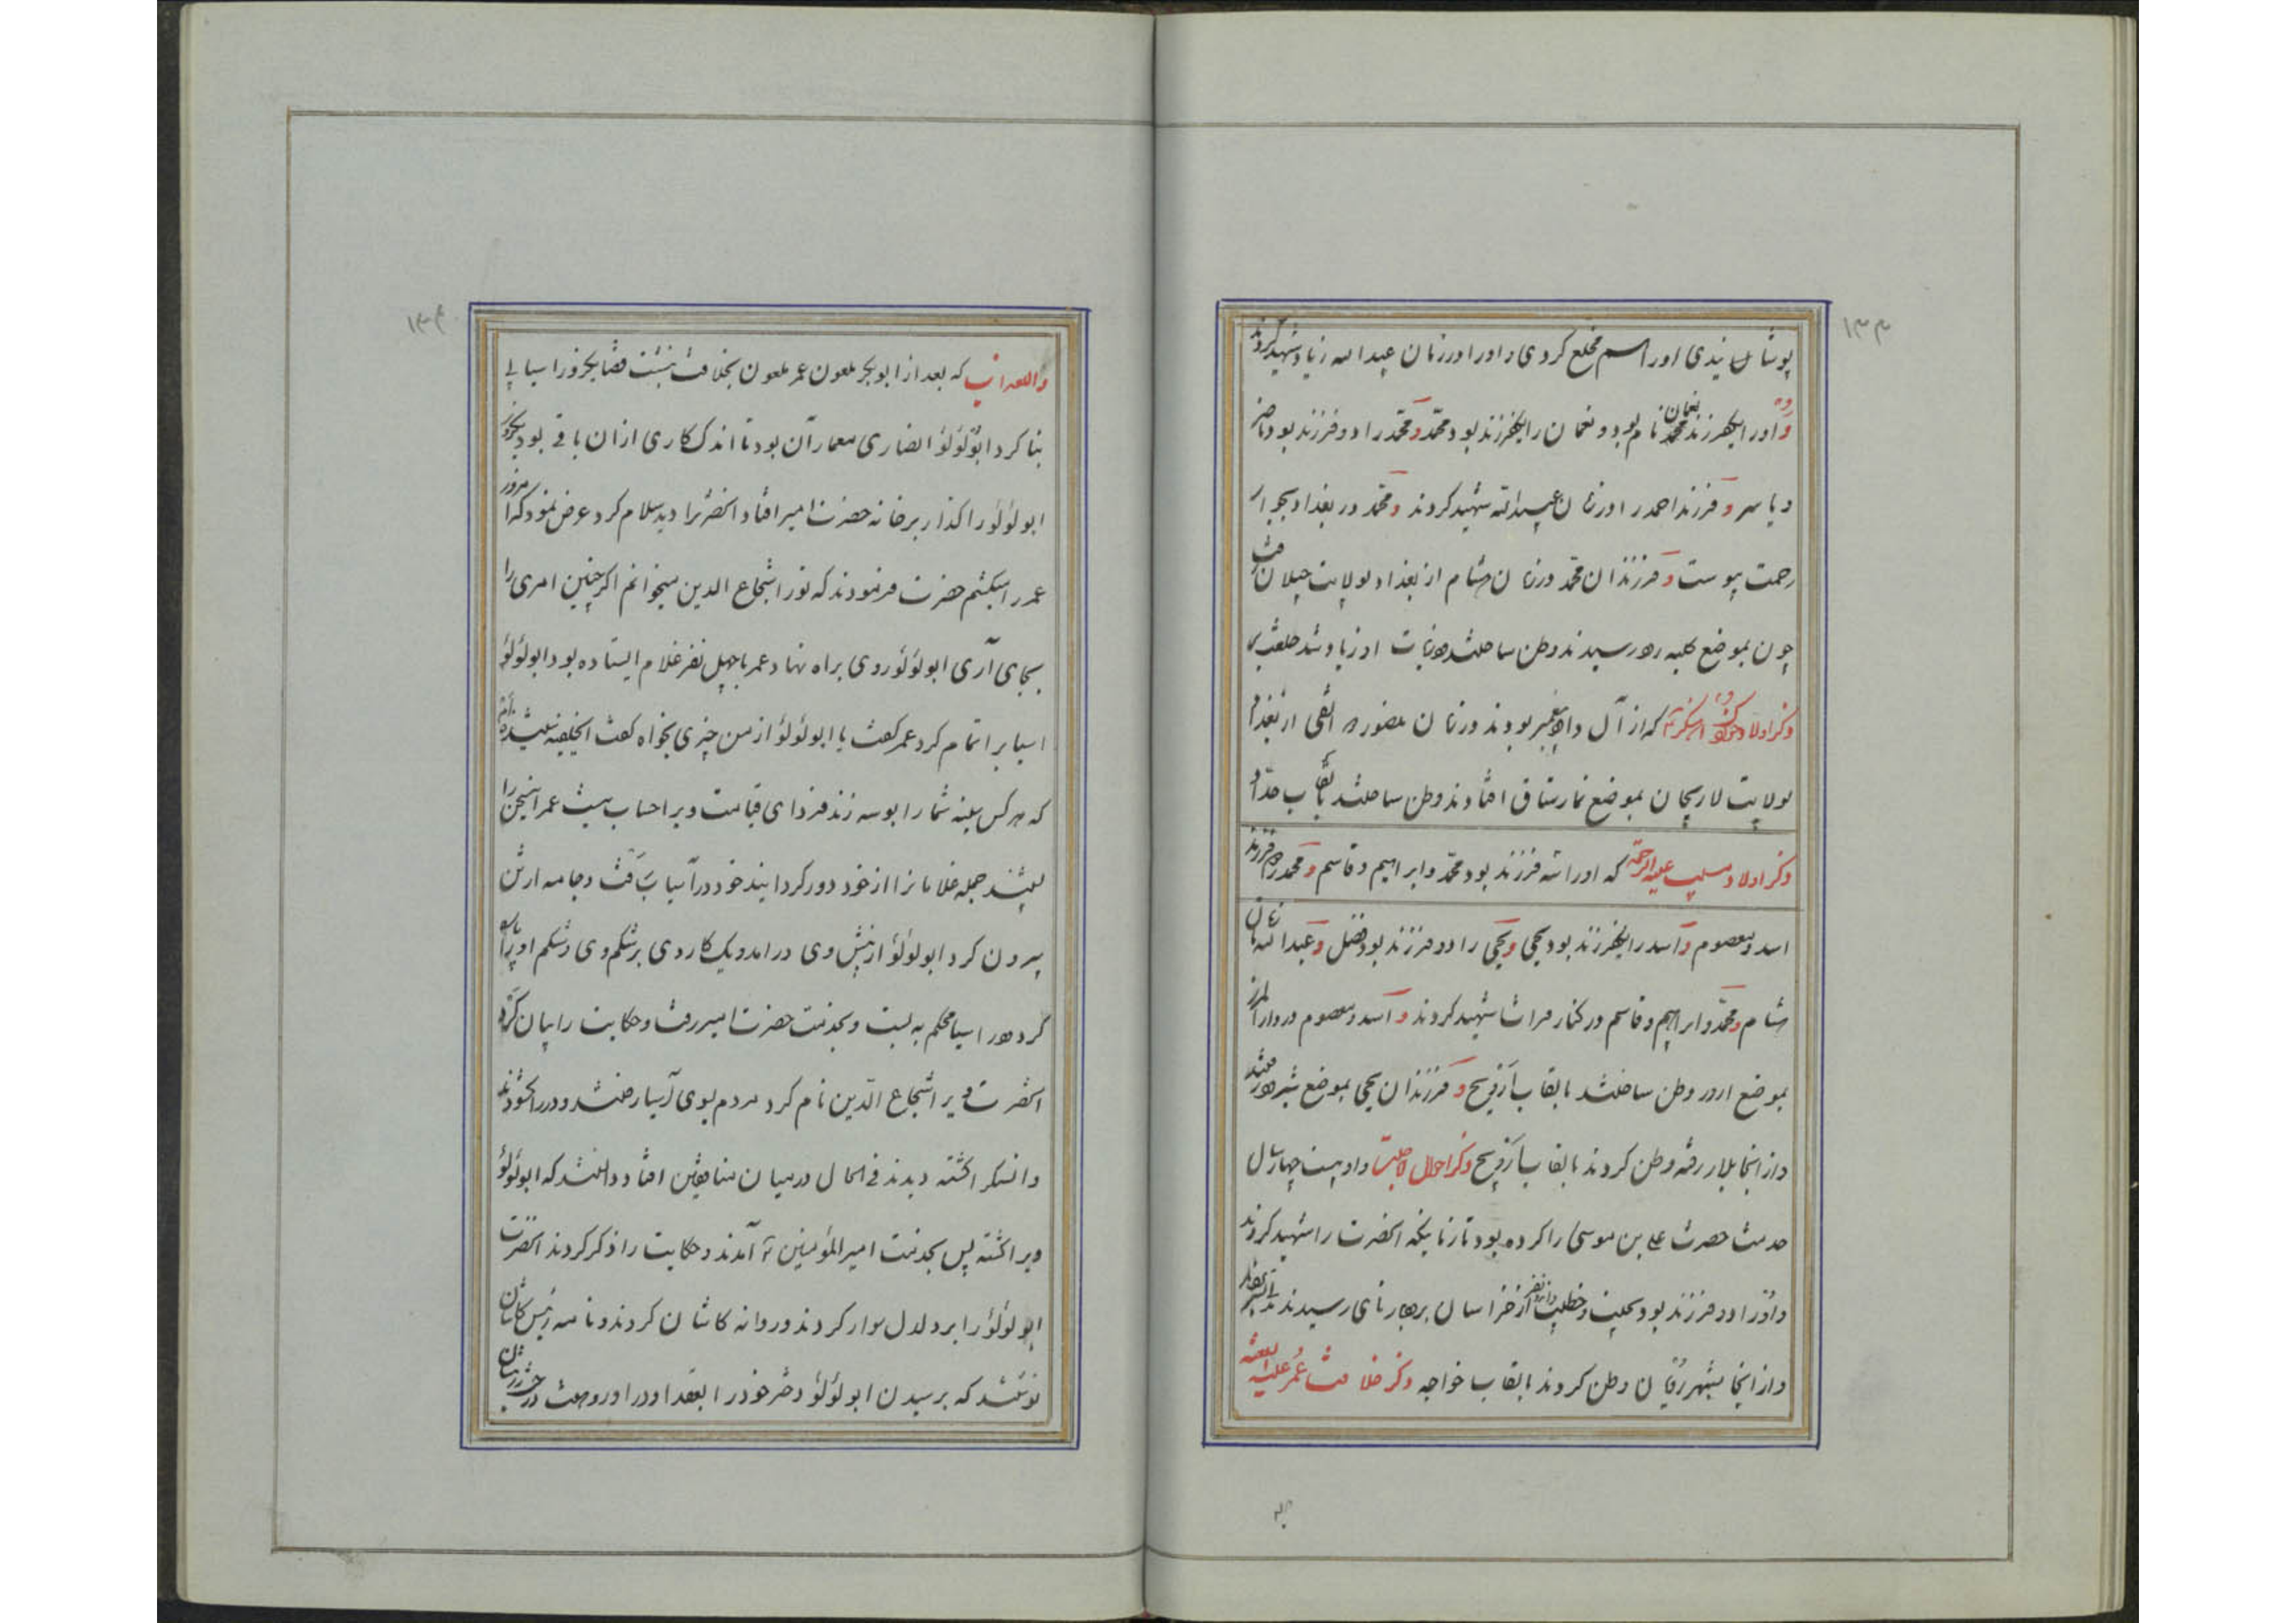 ۱۳۳
پوشانیدی او را اسم مخلع کردی و او را در زمان عبدالله زیاد شهید کردند
و او را یکفرزند نعمان نام بود و نعمان را یکفرزند بود محمّد و محمّد را دو فرزند بود ناصر
و یاسر و فرزند احمد را در زمان عبیدالله شهید کردند و محمّد در بغداد بجوار
رحمت پیوست و فرزندان محمّد در زمان هشام از بغداد بولایت جیلان رفت
چون بموضع کلیه رود رسیدند وطن ساختند
ذکر اولاد که از آل و اولاد پیغمبر بودند در زمان منصور دوانقی از بغداد
بولایت لاریجان بموضع نمارستاق افتادند وطن ساختند بالقاب حدّاد
ذکر اولاد مسیب علیه الرحمة که او را سه فرزند بود محمّد و ابراهیم و قاسم و محمّد را دو فرزند
اسد و معصوم و اسد را یکفرزند بود یحیی و یحیی را دو فرزند بود فضل و عبدالله زمان
هشام و محمّد و ابراهیم و قاسم در کنار فرات شهید کردند و اسد و معصوم در دار المرز
بموضع اردر وطن ساختند بالقاب و فرزندان یحیی بموضع شیرود رفتند
و از آنجا بلار رفته وطن کردند بالقاب ذکر احوال و او بیست چهار سال
خدمت حضرت علی بن موسی را کرده بود تا زمانیکه آنحضرت را شهید کردند
و او را دو فرزند بود از خراسان رسیدند
و از آنجا بشهر وطن کردند بالقاب خواجه ذکر خلافت عمر علیه اللعنه
۱۳۴
و العذاب که بعد از ابوبکر ملعون عمر ملعون بخلافت بنشست قضا یکروز آسیابی
بنا کرد ابولؤلؤ انصاری معمار آن بود تا اندک کاری از آن باقی بود یکروز
ابولؤلؤ را گذار بر خانه حضرت امیر افتاد آنحضرت را دید سلام کرد عرض نمود که امروز
عمر را میکشم حضرت فرمودند که تو را شجاع الدین میخوانم اگر چنین امری را
بجای آری ابولؤلؤ روی براه نهاد عمر با چهل نفر غلام ایستاده بود ابولؤلؤ
آسیا را تمام کرد عمر گفت یا ابولؤلؤ از من چیزی بخواه گفت ایخلیفه
که هر کس سینه شما را بوسه زند فردای قیامت ویرا حساب نیست عمر این سخن را
بشنید جمله غلامانرا از خود دور گردانید خود در آسیا رفت و جامه از تن
بیرون کرد ابولؤلؤ از پیش وی درآمد و یک کاردی بر شکم وی زد شکم او پاره
کرد در آسیا محکم به بست و بخدمت حضرت امیر رفت و حکایت را بیان کرد
آنحضرت ویرا شجاع الدّین نام کرد مردم بسوی آسیا رفتند و در را گشودند
و آن سگ را کشته دیدند فی الحال در میان منافقین افتاد دانستند که ابولؤلؤ
ویرا کشته پس بخدمت امیرالمؤمنین آمدند و حکایت را ذکر کردند آنحضرت
ابولؤلؤ را بر دلدل سوار کردند و روانه کاشان کردند و نامه برئیس کاشان
نوشتند که برسیدن ابولؤلؤ دختر خود را بعقد او درآور